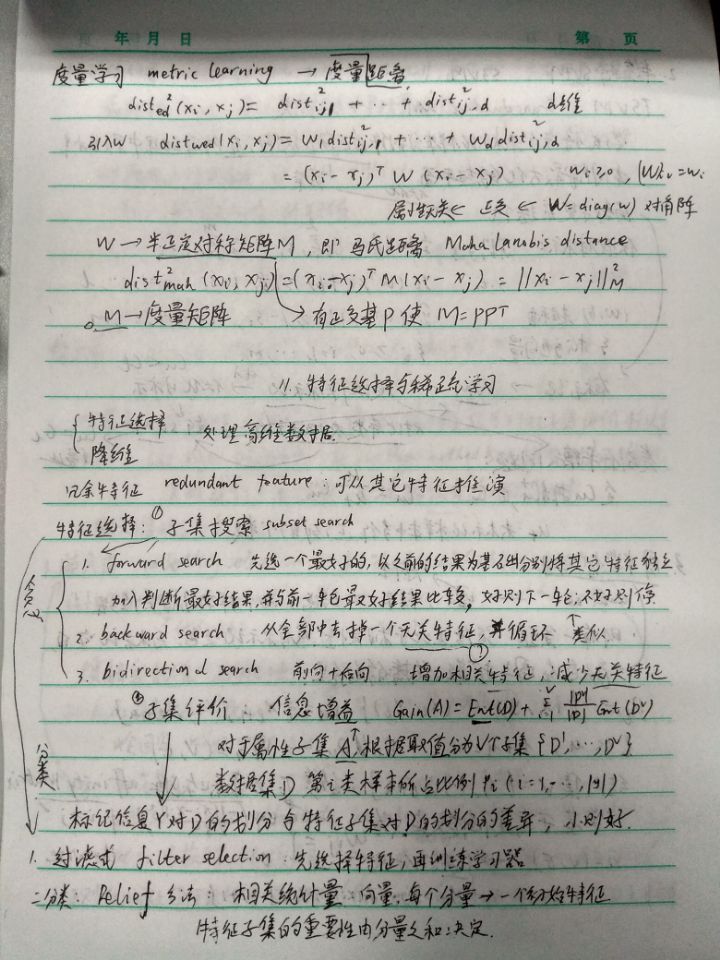 年 月 日 第 页
度量学习 metric learning → 度量距离
dist²ed (xi, xj) = dist²ij,1 + ‥ + dist²ij,d d维
引入W distwed (xi, xj) = W1dist²ij,1 + ⋯ + Wd dist²ij,d
= (xi - xj)ᵀ W (xi - xj) wi≥0, (W)ii = wi
属性无关 ← 正交 ← W=diag(w) 对角阵
W → 半正定对称矩阵M, 即 马氏距离 Mahalanobis distance
dist²mah (xi, xj) = (xi - xj)ᵀ M (xi - xj) = ||xi - xj||²M
。M → 度量矩阵 有正交基P使 M=PPT
11. 特征选择与稀疏学习
特征选择
处理高维数据
降维
冗余特征 redundant feature: 可以其它特征推演
特征选择: ① 子集搜索 subset search
1. forward search 先选一个最好的, 以之前的结果为基础分别将其它特征独立
加入判断最好结果, 并与前一轮最好结果比较, 好则下一轮, 不好则停
2. backward search 从全部中去掉一个无关特征, 并循环 ↑类似
3. bidirectional search 前向+后向 增加相关特征, 减少无关特征
② 子集评价: 信息增益 Gain(A) = Ent(D) + Σ |Dᵛ|/|D| Ent(Dᵛ)
对于属性子集A, 根据取值分为V个子集 {D¹, ‥, Dᵛ}
分类
数据集D 第i类样本所占比例 Pi (i=1, ‥, |y|)
标记信息Y对D的划分与特征子集对D的划分的差异, 小则好.
1. 过滤式 filter selection: 先选择特征, 再训练学习器
二分类: Relief 方法: 相关统计量: 向量, 每个分量 → 一个初始特征
特征子集的重要性由分量之和决定.